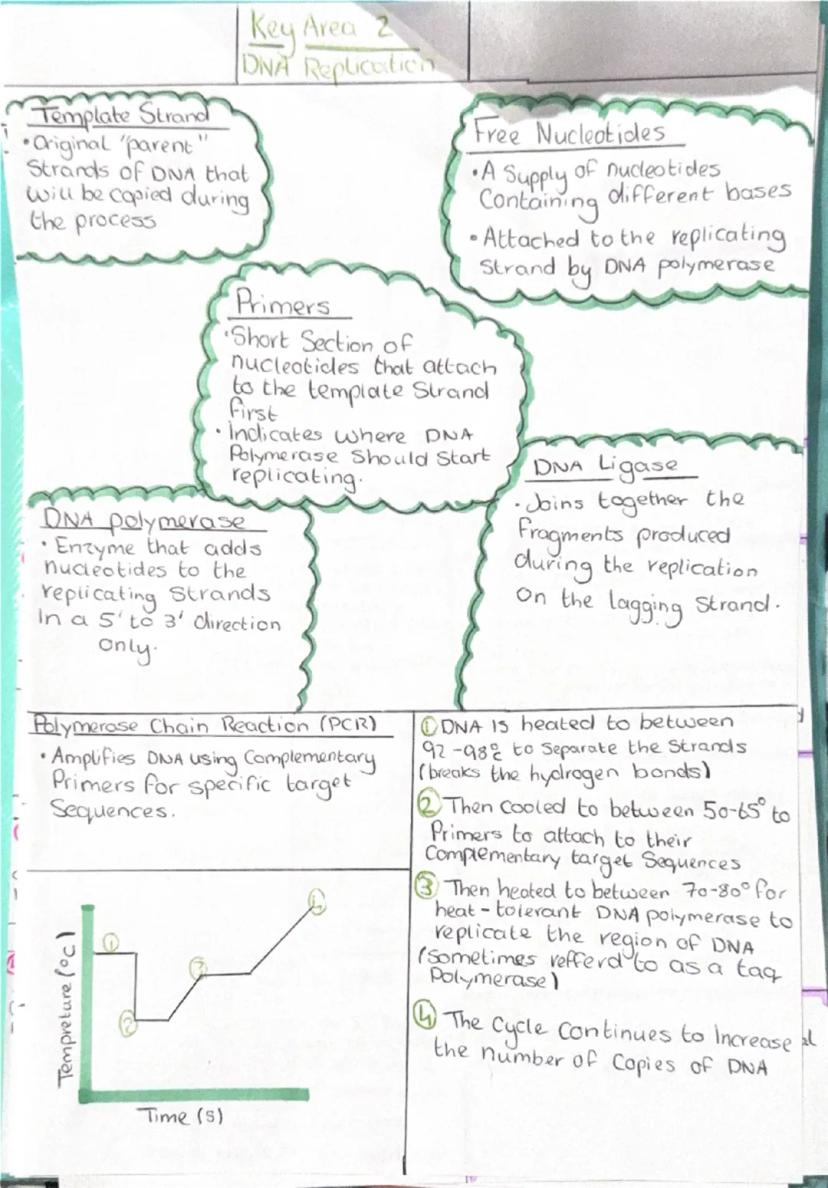 Key Area 2
DNA Replication
Template Strand
• Original "parent"
Strands of DNA that
will be copied during
the process
Free Nucleotides
• A Supply of nucleotides
Containing different bases
• Attached to the replicating
Strand by DNA polymerase
Primers
• Short Section of
nucleotides that attach
to the template Strand
first
• Indicates where DNA
Polymerase Should Start
replicating.
DNA Ligase
• Joins together the
fragments produced
during the replication
on the lagging Strand.
DNA polymerase
• Enzyme that adds
nucleotides to the
replicating Strands
in a 5' to 3' direction
only.
Polymerase Chain Reaction (PCR)
• Amplifies DNA using Complementary
Primers for specific target
Sequences.
① DNA is heated to between
92-98°c to Separate the Strands
(breaks the hydrogen bonds)
② Then Cooled to between 50-65° to
Primers to attach to their
Complementary target Sequences
③ Then heated to between 70-80° for
heat-tolerant DNA polymerase to
replicate the region of DNA
(sometimes refferd to as a taq
Polymerase)
④ The Cycle Continues to Increase
the number of Copies of DNA
Tempreture (°C)
①
②
③
Time (S)